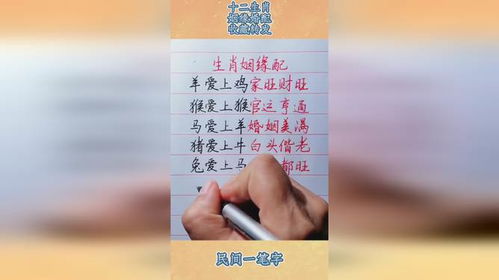 十二生肖
姻缘婚配
收藏转发
生肖姻缘配
羊爱上鸡家旺财旺
猴爱上猴官运亨通
马爱上羊婚姻美满
猪爱上牛白头偕老
兔爱上马 都旺
民间一笔字